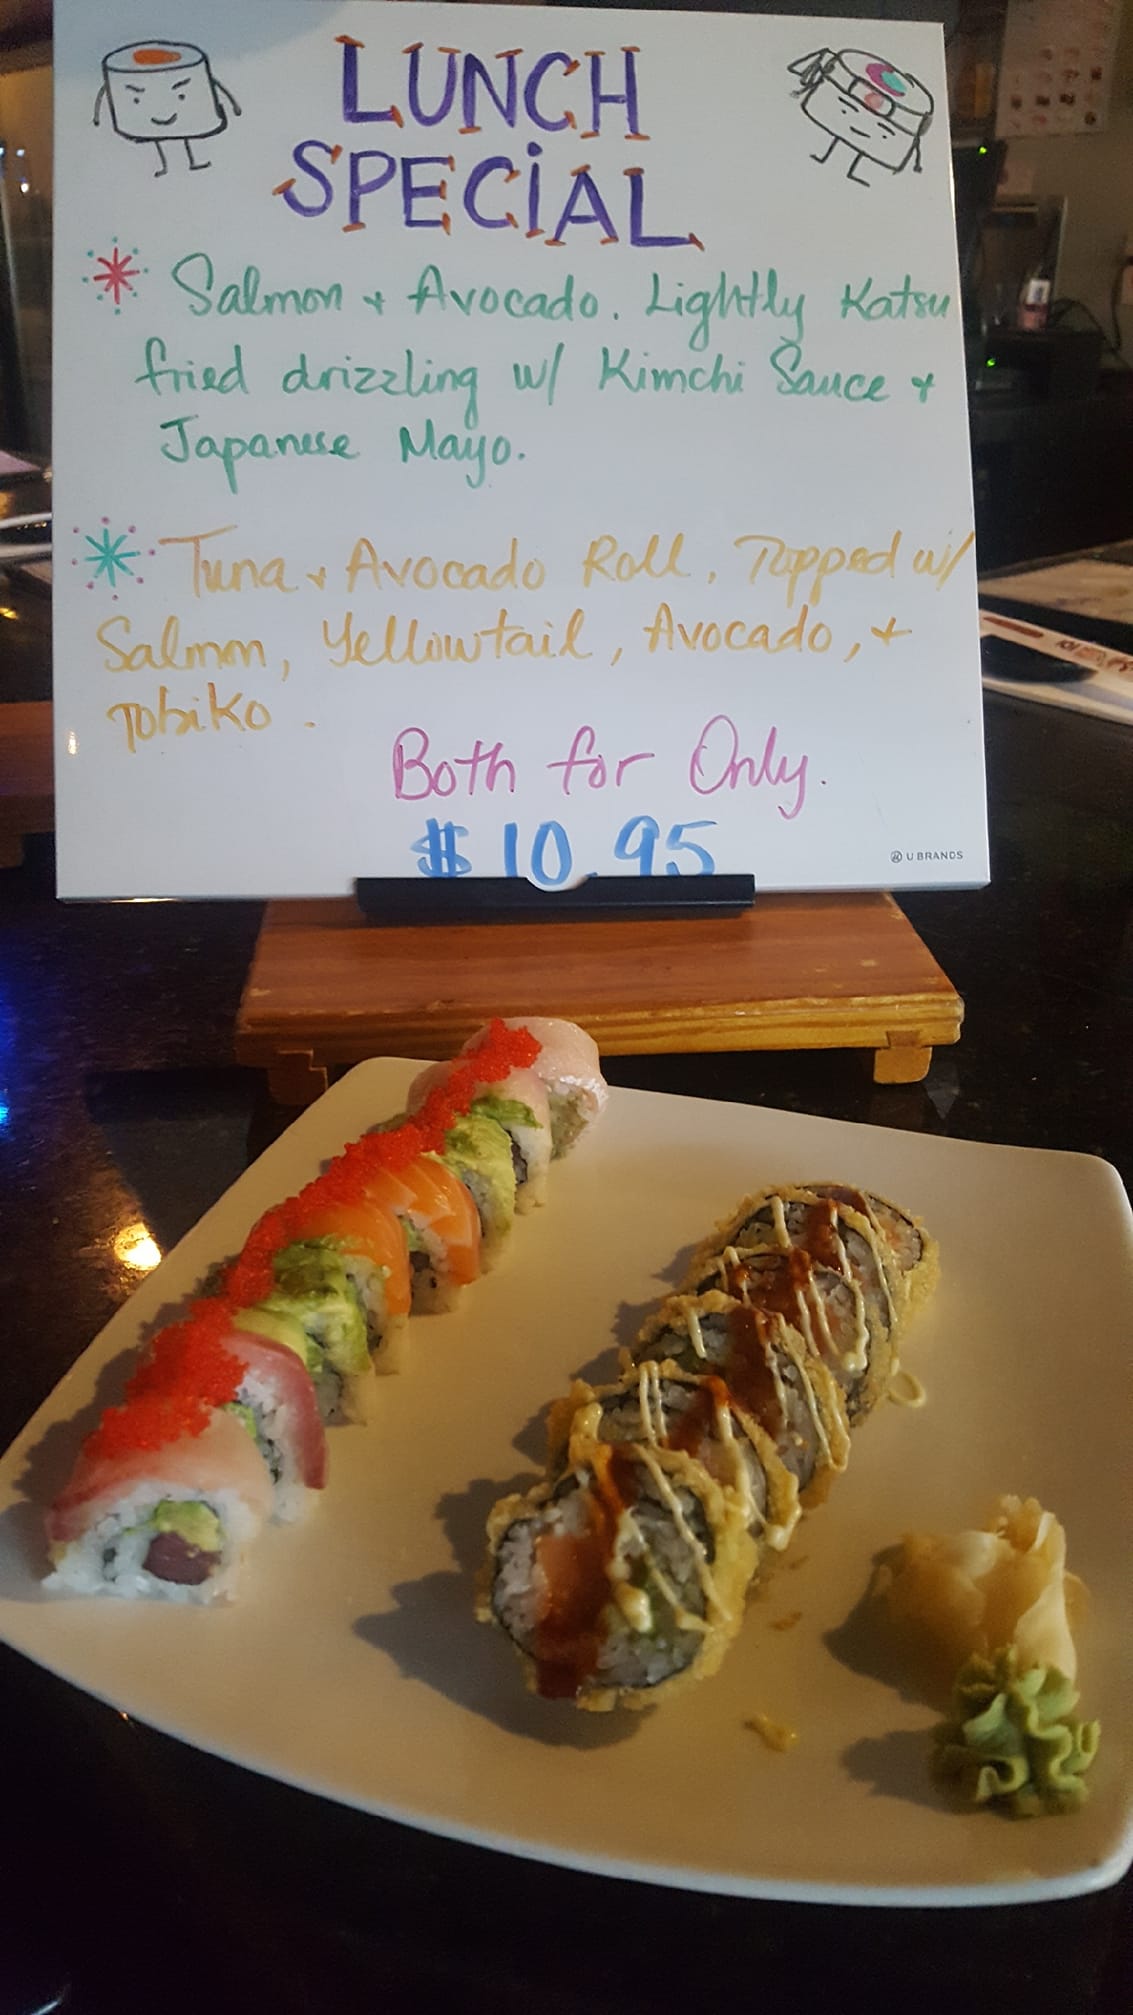 LUNCH
SPECiAL
Salmon + Avocado. Lightly Katsu
fried drizzling w/ Kimchi Sauce +
Japanese Mayo.
Tuna + Avocado Roll, Topped w/
Salmon, Yellowtail, Avocado, +
Tobiko.
Both for Only.
$10.95
U BRANDS